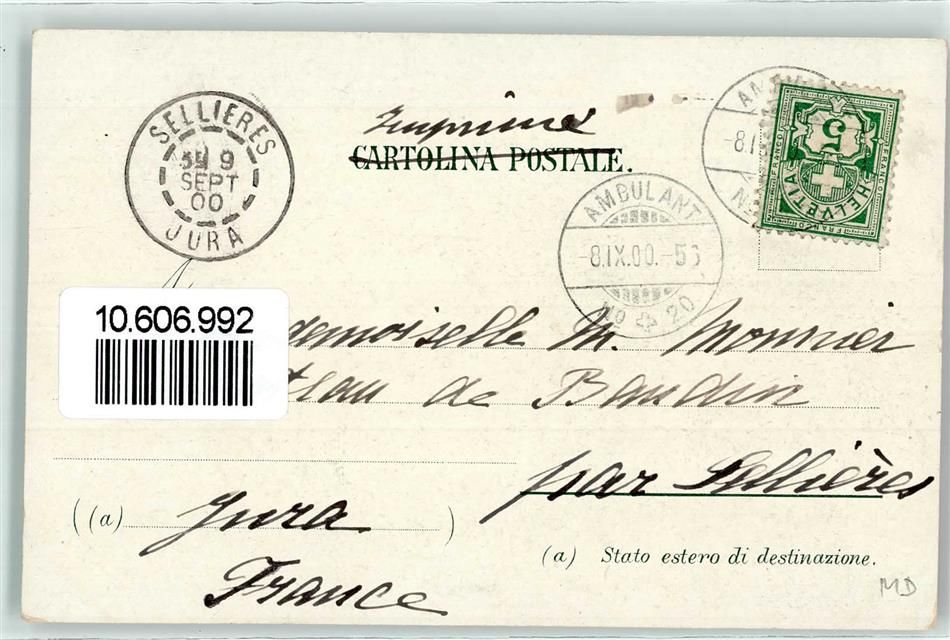 SELLIERES
9
SEPT
00
JURA
Imprimé
CARTOLINA POSTALE.
AMBULANT
-8.IX.00.-5
No 20
-8.I
N
FRANCO
5
HELVETIA
FRANCO
10.606.992
demoiselle M. Monnier
teau de Baudin
par Sellières
((a) Jura )
France
(a) Stato estero di destinazione.
MD